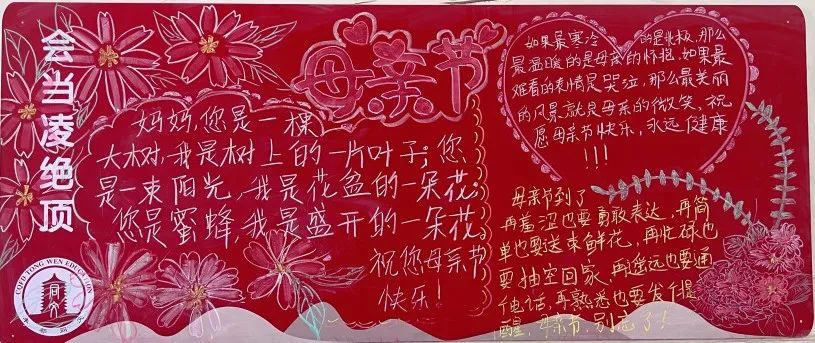 会当凌绝顶
母亲节
妈妈,您是一棵
大树,我是树上的一片叶子;您
是一束阳光,我是花盆的一朵花;
您是蜜蜂,我是盛开的一朵花,
祝您母亲节
快乐!
如果最寒冷的是北极,那么
最温暖的是母亲的怀抱,如果最
难看的表情是哭泣,那么最美丽
的风景就是母亲的微笑,祝
愿母亲节快乐,永远健康
!!!
母亲节到了
再羞涩也要勇敢表达,再简
单也要送束鲜花,再忙碌也
要抽空回家,再遥远也要通
电话,再熟悉也要发个提
醒,母亲节,别忘了!
TONG WEN EDUCATION